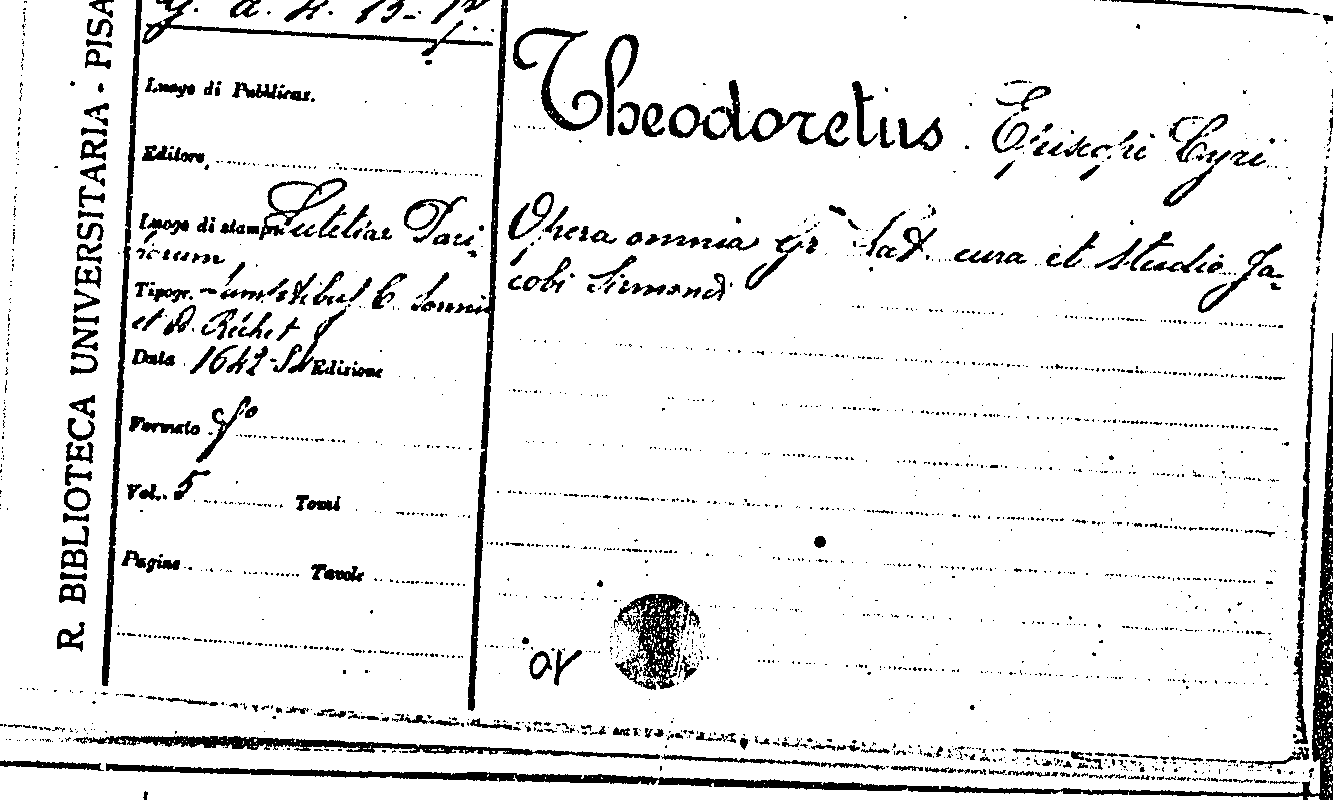 R. BIBLIOTECA UNIVERSITARIA - PISA
a. 4. 15-
Luogo di Pubblicaz.
Editore
Luogo di stampa Lutetiae Pari
siorum
Tipogr. Sumptibus C. Sonnii
et D. Béchet
Data 1642- Edizione
Formato f°
Vol. 5 Tomi
Pagine Tavole
Theodoretus Episcopi Cyri
Opera omnia gr lat. cura et studio Ja-
cobi Sirmondi